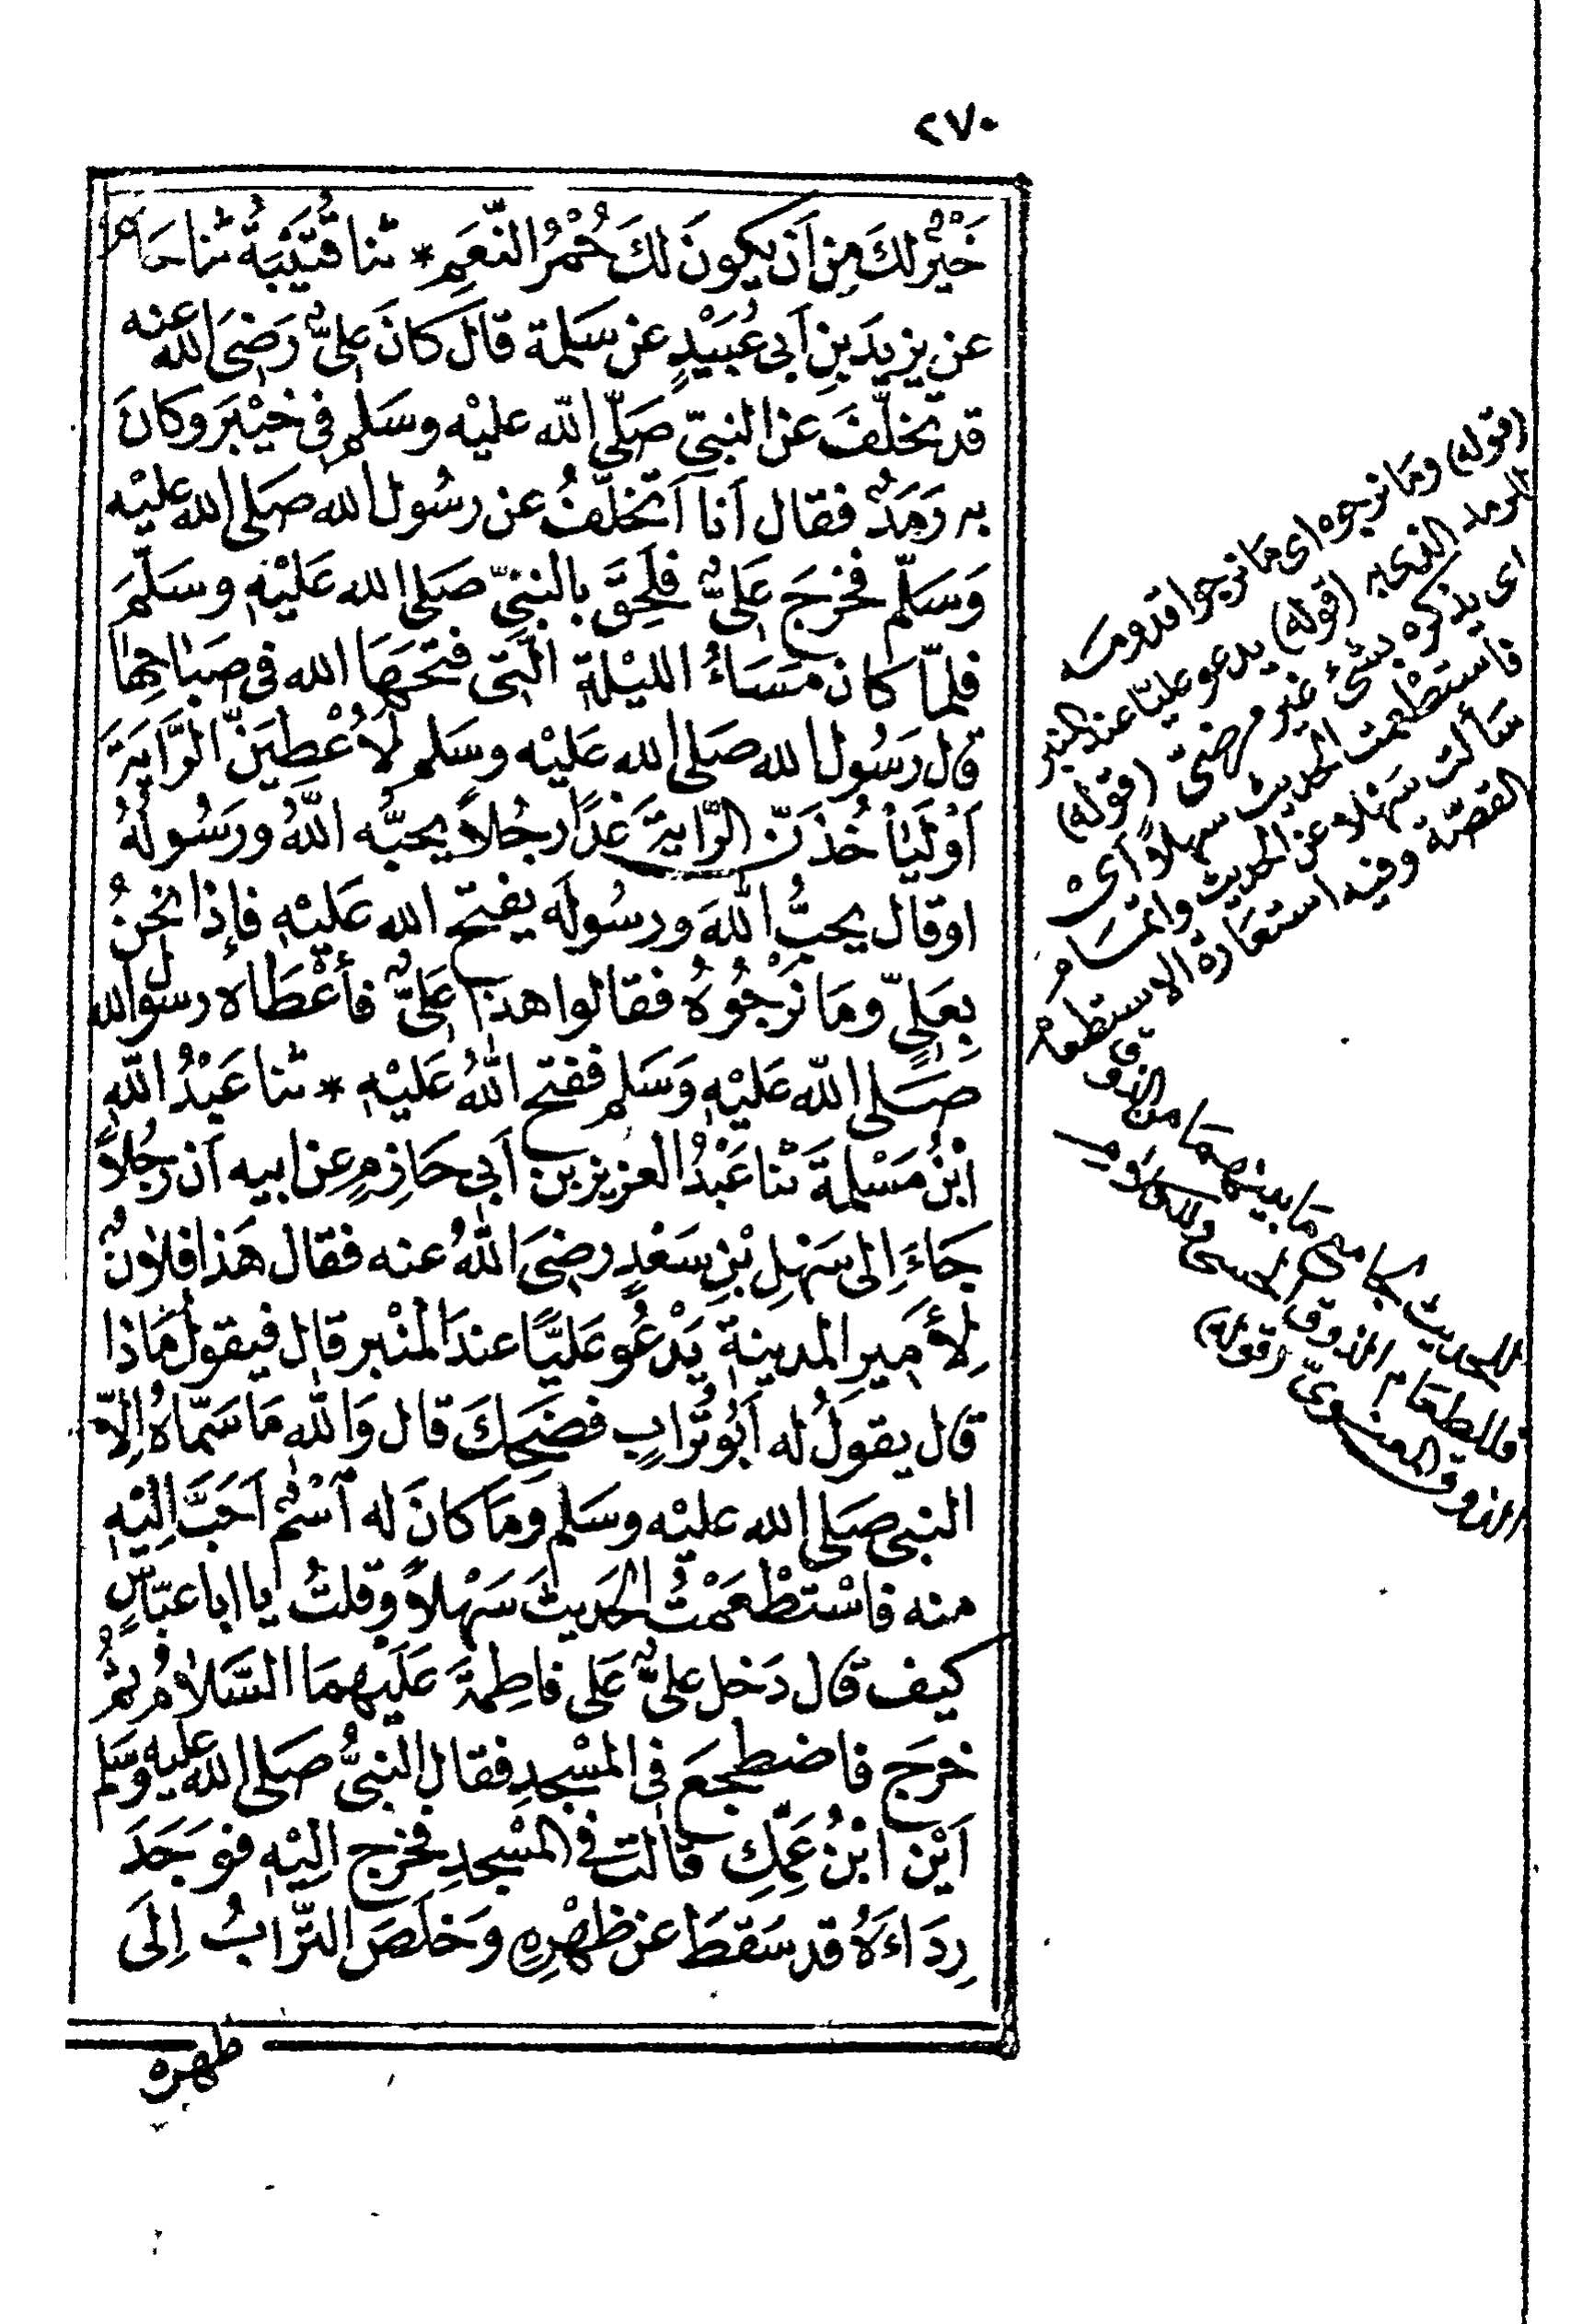 ٢٧٠
خَيْرٌ لَكَ مِنْ اَنْ يكونَ لكَ حُمْرُ النَّعَمِ * ثنا قُتَيْبَةُ ثنا حَاتِمٌ
عن يزيدَ بنِ اَبى عُبَيْدٍ عن سَلمة قال كَانَ عَلِىٌّ رَضِىَ الله عنه
قد تخلَّفَ عن النبىِّ صَلّى الله عليْه وسَلم فى خَيْبَرَ وكانَ
به رَمَدٌ فقال اَنا اَتخلّفُ عن رسُول الله صَلى الله عليْه
وَسَلّم فخرَجَ عَلِىٌّ فلَحِقَ بالنبىِّ صَلى الله عَليْهِ وسَلّمَ
فلمّا كان مَسَاءُ الليْلةِ الّتى فتحَهَا الله فى صَبَاحِهَا
قال رَسُول الله صَلى الله عَليْه وسَلم لَأُعْطِيَنَّ الرَّايَةَ
اَوْ لَيَأْخُذَنّ الرَّايَةَ غَدًا رجُلاً يحبُّه اللّهُ ورَسُولهُ
اوقال يحبُّ اللّهَ ورسُولَه يفتح الله عَليْهِ فإذا نحْنُ
بِعَلِىٍّ ومَا نَرْجُوهُ فقالوا هذا عَلِىٌّ فأَعْطَاه رسول الله
صَلى اللّه عَليْهِ وَسَلم ففتح اللّهُ عَليْهِ * ثنا عَبْدُ اللّهِ
ابْنُ مَسْلمةَ ثنا عَبْدُ العزيز بن اَبِى حَازِمٍ عن ابيه اَن رجُلاً
جَاءَ اِلى سَهْلِ بْنِ سَعْدٍ رضىَ اللّهُ عنه فقال هَذا فلاَنٌ
لِأَمِيرِ المدينةِ يَدْعُو عَليًّا عندَ المنْبر قال فيقولُ مَاذا
قال يقولُ له اَبُو تُرابٍ فضَحِكَ قال وَاللّهِ مَا سَمّاهُ اِلاّ
النبى صَلى الله عليْه وسَلم وَمَا كانَ له اسْمٌ اَحَبَّ اِليْهِ
منه فاسْتَطْعَمْتُ الحَديثَ سَهْلاً وقلتُ يا ابا عبّاسٍ
كيف قال دَخل علىٌّ عَلى فاطِمةَ عَليْهِمَا السَّلاَمُ ثمَّ
خرجَ فاضطجعَ فى المسْجدِ فقال النّبىُّ صَلى الله عليه وسَلم
اَيْن ابْنُ عَمِّكِ قالت فى المسْجدِ فخرج اليْهِ فوَجَدَ
رِدَاءَهُ قد سَقطَ عن ظهْرِهِ وَخلَصَ الترَّابُ اِلَى
ظهره
(قوله) ومَا نرجوه اى مَا نرجوا قدومه
للرمد الذى به (قوله) يدعو عليًّا عند المنبر
اى يذكره بشئ غير مرضىّ (قوله)
فاستطعمت الحديث سهلاً اىْ
سَألت سَهْلاً عن الحديث واتمام
القصّة وفيه استعَارَة الاستطعام
للحديث بجامع مَا بينهمَا من الذوق
فللطعَام الذوق الحسىّ وللكلاَم
الذوق المعنوىّ (قوله)